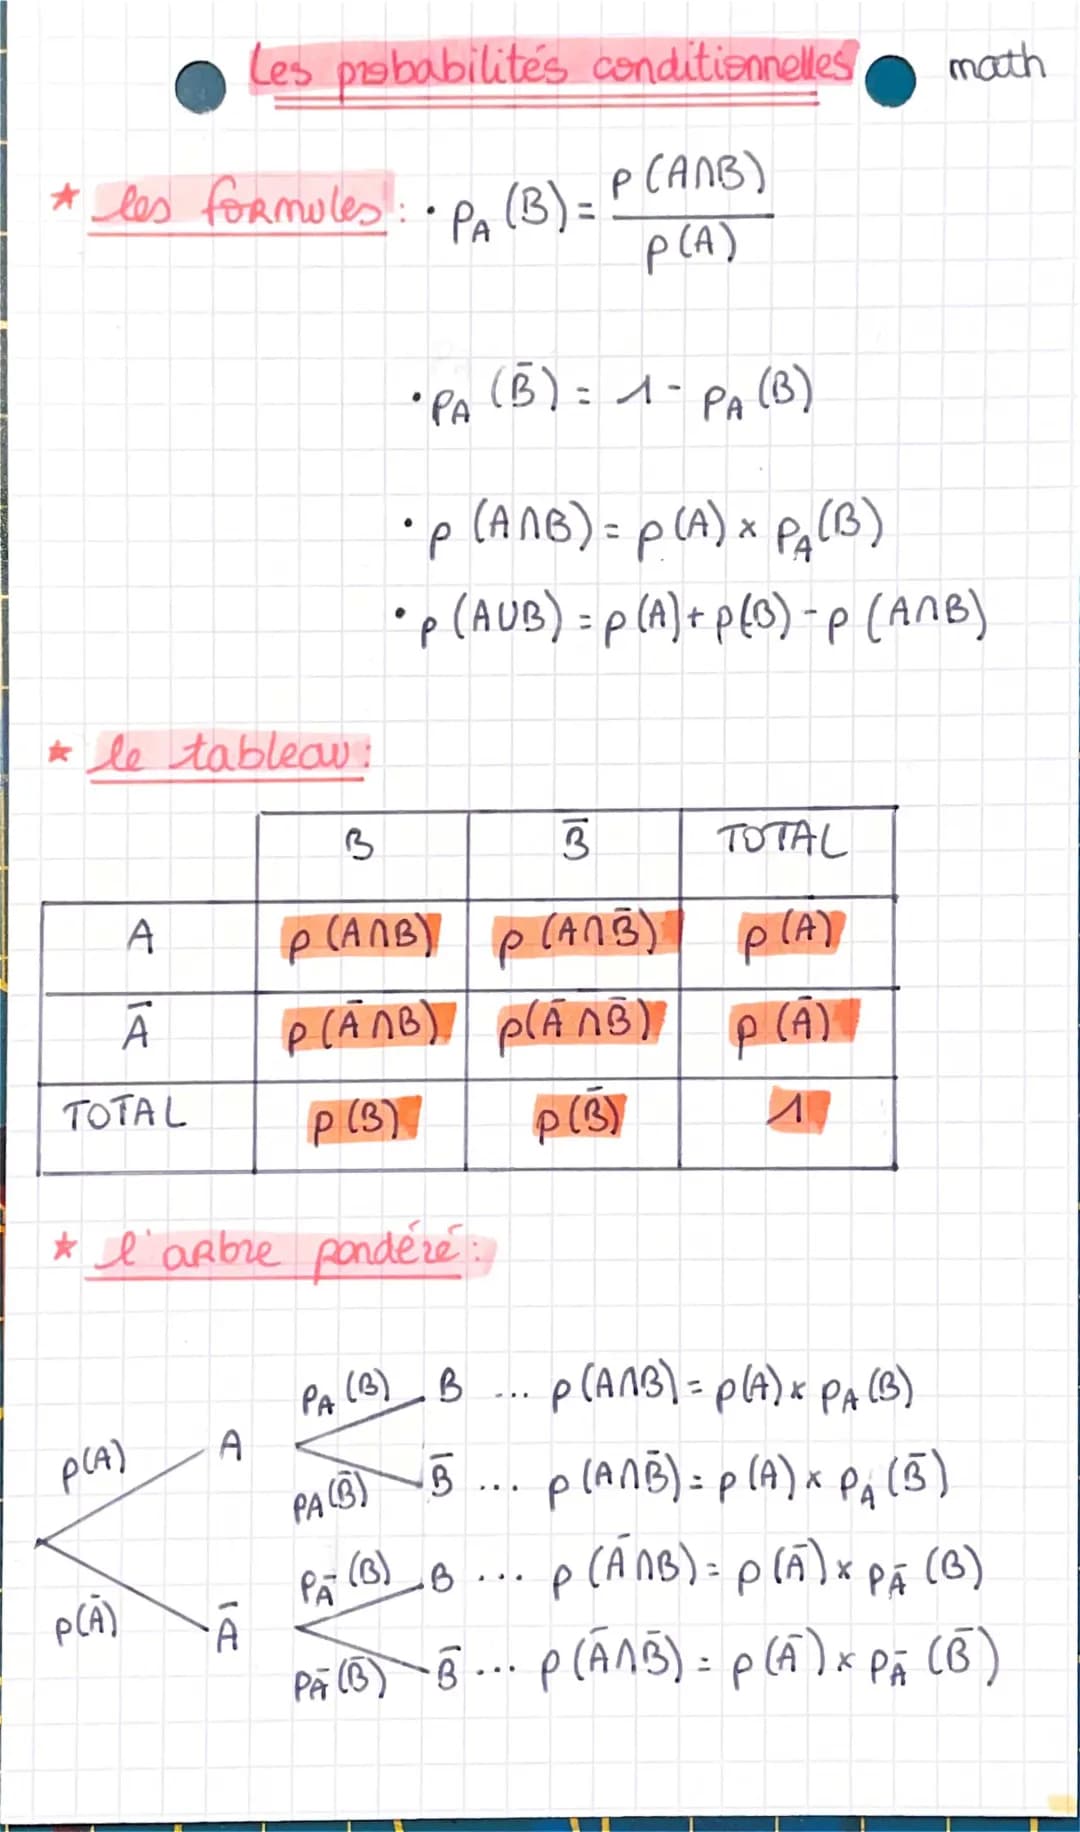 Les probabilités conditionnelles math
* les formules : • p_A (B) = p (A∩B) / p (A)
• p_A (B̄) = 1 - p_A (B)
• p (A∩B) = p (A) × p_A (B)
• p (A∪B) = p (A) + p (B) - p (A∩B)
* le tableau :
B B̄ TOTAL
A p (A∩B) p (A∩B̄) p (A)
Ā p (Ā∩B) p (Ā∩B̄) p (Ā)
TOTAL p (B) p (B̄) 1
* l'arbre pondéré :
p_A (B) B ... p (A∩B) = p (A) × p_A (B)
p(A) A
p_A (B̄) B̄ ... p (A∩B̄) = p (A) × p_A (B̄)
p_Ā (B) B ... p (Ā∩B) = p (Ā) × p_Ā (B)
p(Ā) Ā
p_Ā (B̄) B̄ ... p (Ā∩B̄) = p (Ā) × p_Ā (B̄)